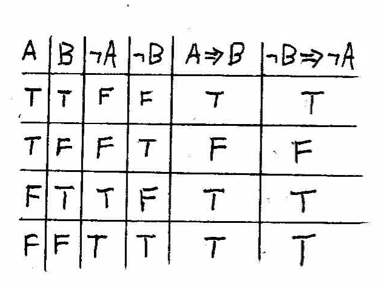 A B ¬A ¬B A⇒B ¬B⇒¬A
T T F F T T
T F F T F F
F T T F T T
F F T T T T